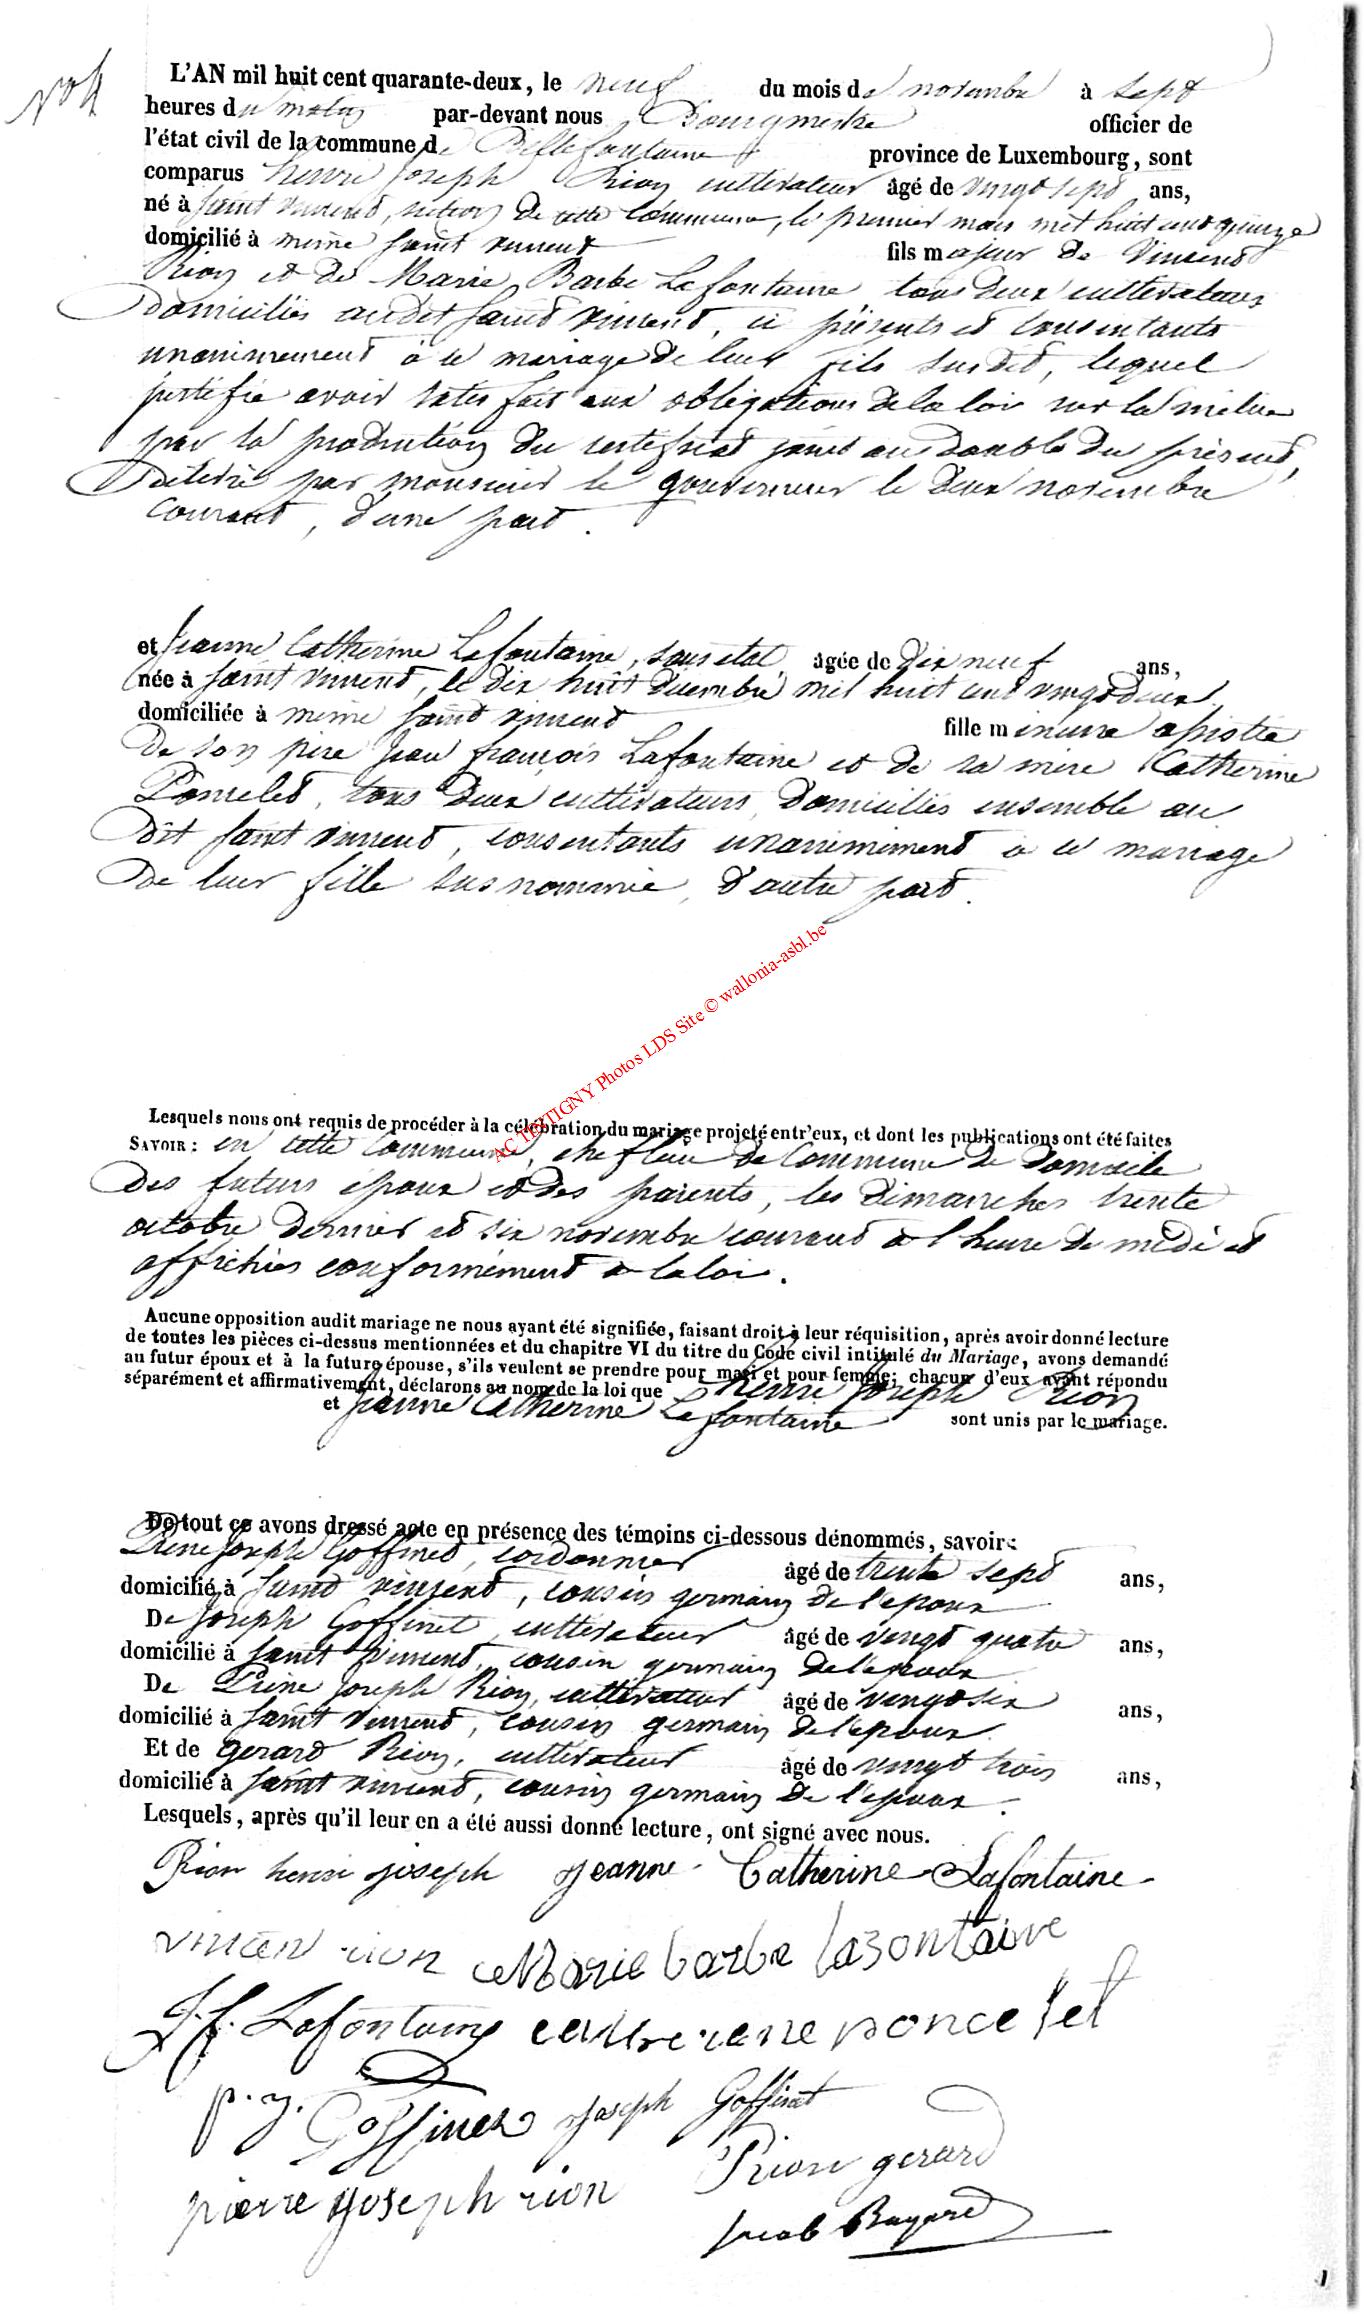 No 4
L'AN mil huit cent quarante-deux, le neuf du mois de novembre à sept
heures du matin par-devant nous Bourgmestre officier de
l'état civil de la commune de Bellefontaine province de Luxembourg, sont
comparus henri Joseph Rion cultivateur âgé de vingt sept ans,
né à Saint Vincent, section de cette commune, le premier mars mil huit cent quinze
domicilié à même Saint Vincent fils majeur de Vincent
Rion et de Marie Barbe Lafontaine, tous deux cultivateurs
domiciliés audit Saint Vincent, ci présents et consentants
unanimement à ce mariage de leur fils susdit, lequel
justifie avoir satisfait aux obligations de la loi sur la milice
par la production du certificat joint au double du présent,
délivré par monsieur le gouverneur le deux novembre
courant, d'une part.
et Jeanne Catherine Lafontaine, sans état, âgée de dix neuf ans,
née à Saint Vincent, le dix huit décembre mil huit cent vingt deux
domiciliée à même Saint Vincent fille mineure assistée
de son père Jean françois Lafontaine et de sa mère Catherine
Poncelet, tous deux cultivateurs, domiciliés ensemble au
dit Saint Vincent, consentants unanimement à ce mariage
de leur fille susnommée, d'autre part.
AC TINTIGNY Photos LDS Site © wallonia-asbl.be
Lesquels nous ont requis de procéder à la célébration du mariage projeté entr'eux, et dont les publications ont été faites
SAVOIR : en cette commune, chef lieu de commune de domicile
des futurs époux et des parents, les dimanches trente
octobre dernier et six novembre courant à l'heure de midi et
affichées conformément à la loi.
Aucune opposition audit mariage ne nous ayant été signifiée, faisant droit à leur réquisition, après avoir donné lecture
de toutes les pièces ci-dessus mentionnées et du chapitre VI du titre du Code civil intitulé du Mariage, avons demandé
au futur époux et à la future épouse, s'ils veulent se prendre pour mari et pour femme; chacun d'eux ayant répondu
séparément et affirmativement, déclarons au nom de la loi que henri Joseph Rion
et Jeanne Catherine Lafontaine sont unis par le mariage.
De tout ce avons dressé acte en présence des témoins ci-dessous dénommés, savoir:
Pierre Joseph Goffinet, cordonnier âgé de trente sept ans,
domicilié à Saint Vincent, cousin germain de l'époux
De Joseph Goffinet, cultivateur âgé de vingt quatre ans,
domicilié à Saint Vincent, cousin germain de l'époux
De Pierre Joseph Rion, cultivateur âgé de vingt six ans,
domicilié à Saint Vincent, cousin germain de l'époux.
Et de gerard Rion, cultivateur âgé de vingt trois ans,
domicilié à Saint Vincent, cousin germain de l'époux.
Lesquels, après qu'il leur en a été aussi donné lecture, ont signé avec nous.
Rion henri joseph Jeanne Catherine Lafontaine
vincent rion Marie barbe lafontaine
J. f. Lafontaine catherine poncelet
p. j. Goffinet Joseph Goffinet
pierre joseph rion Rion gerard
Jacob Bayard